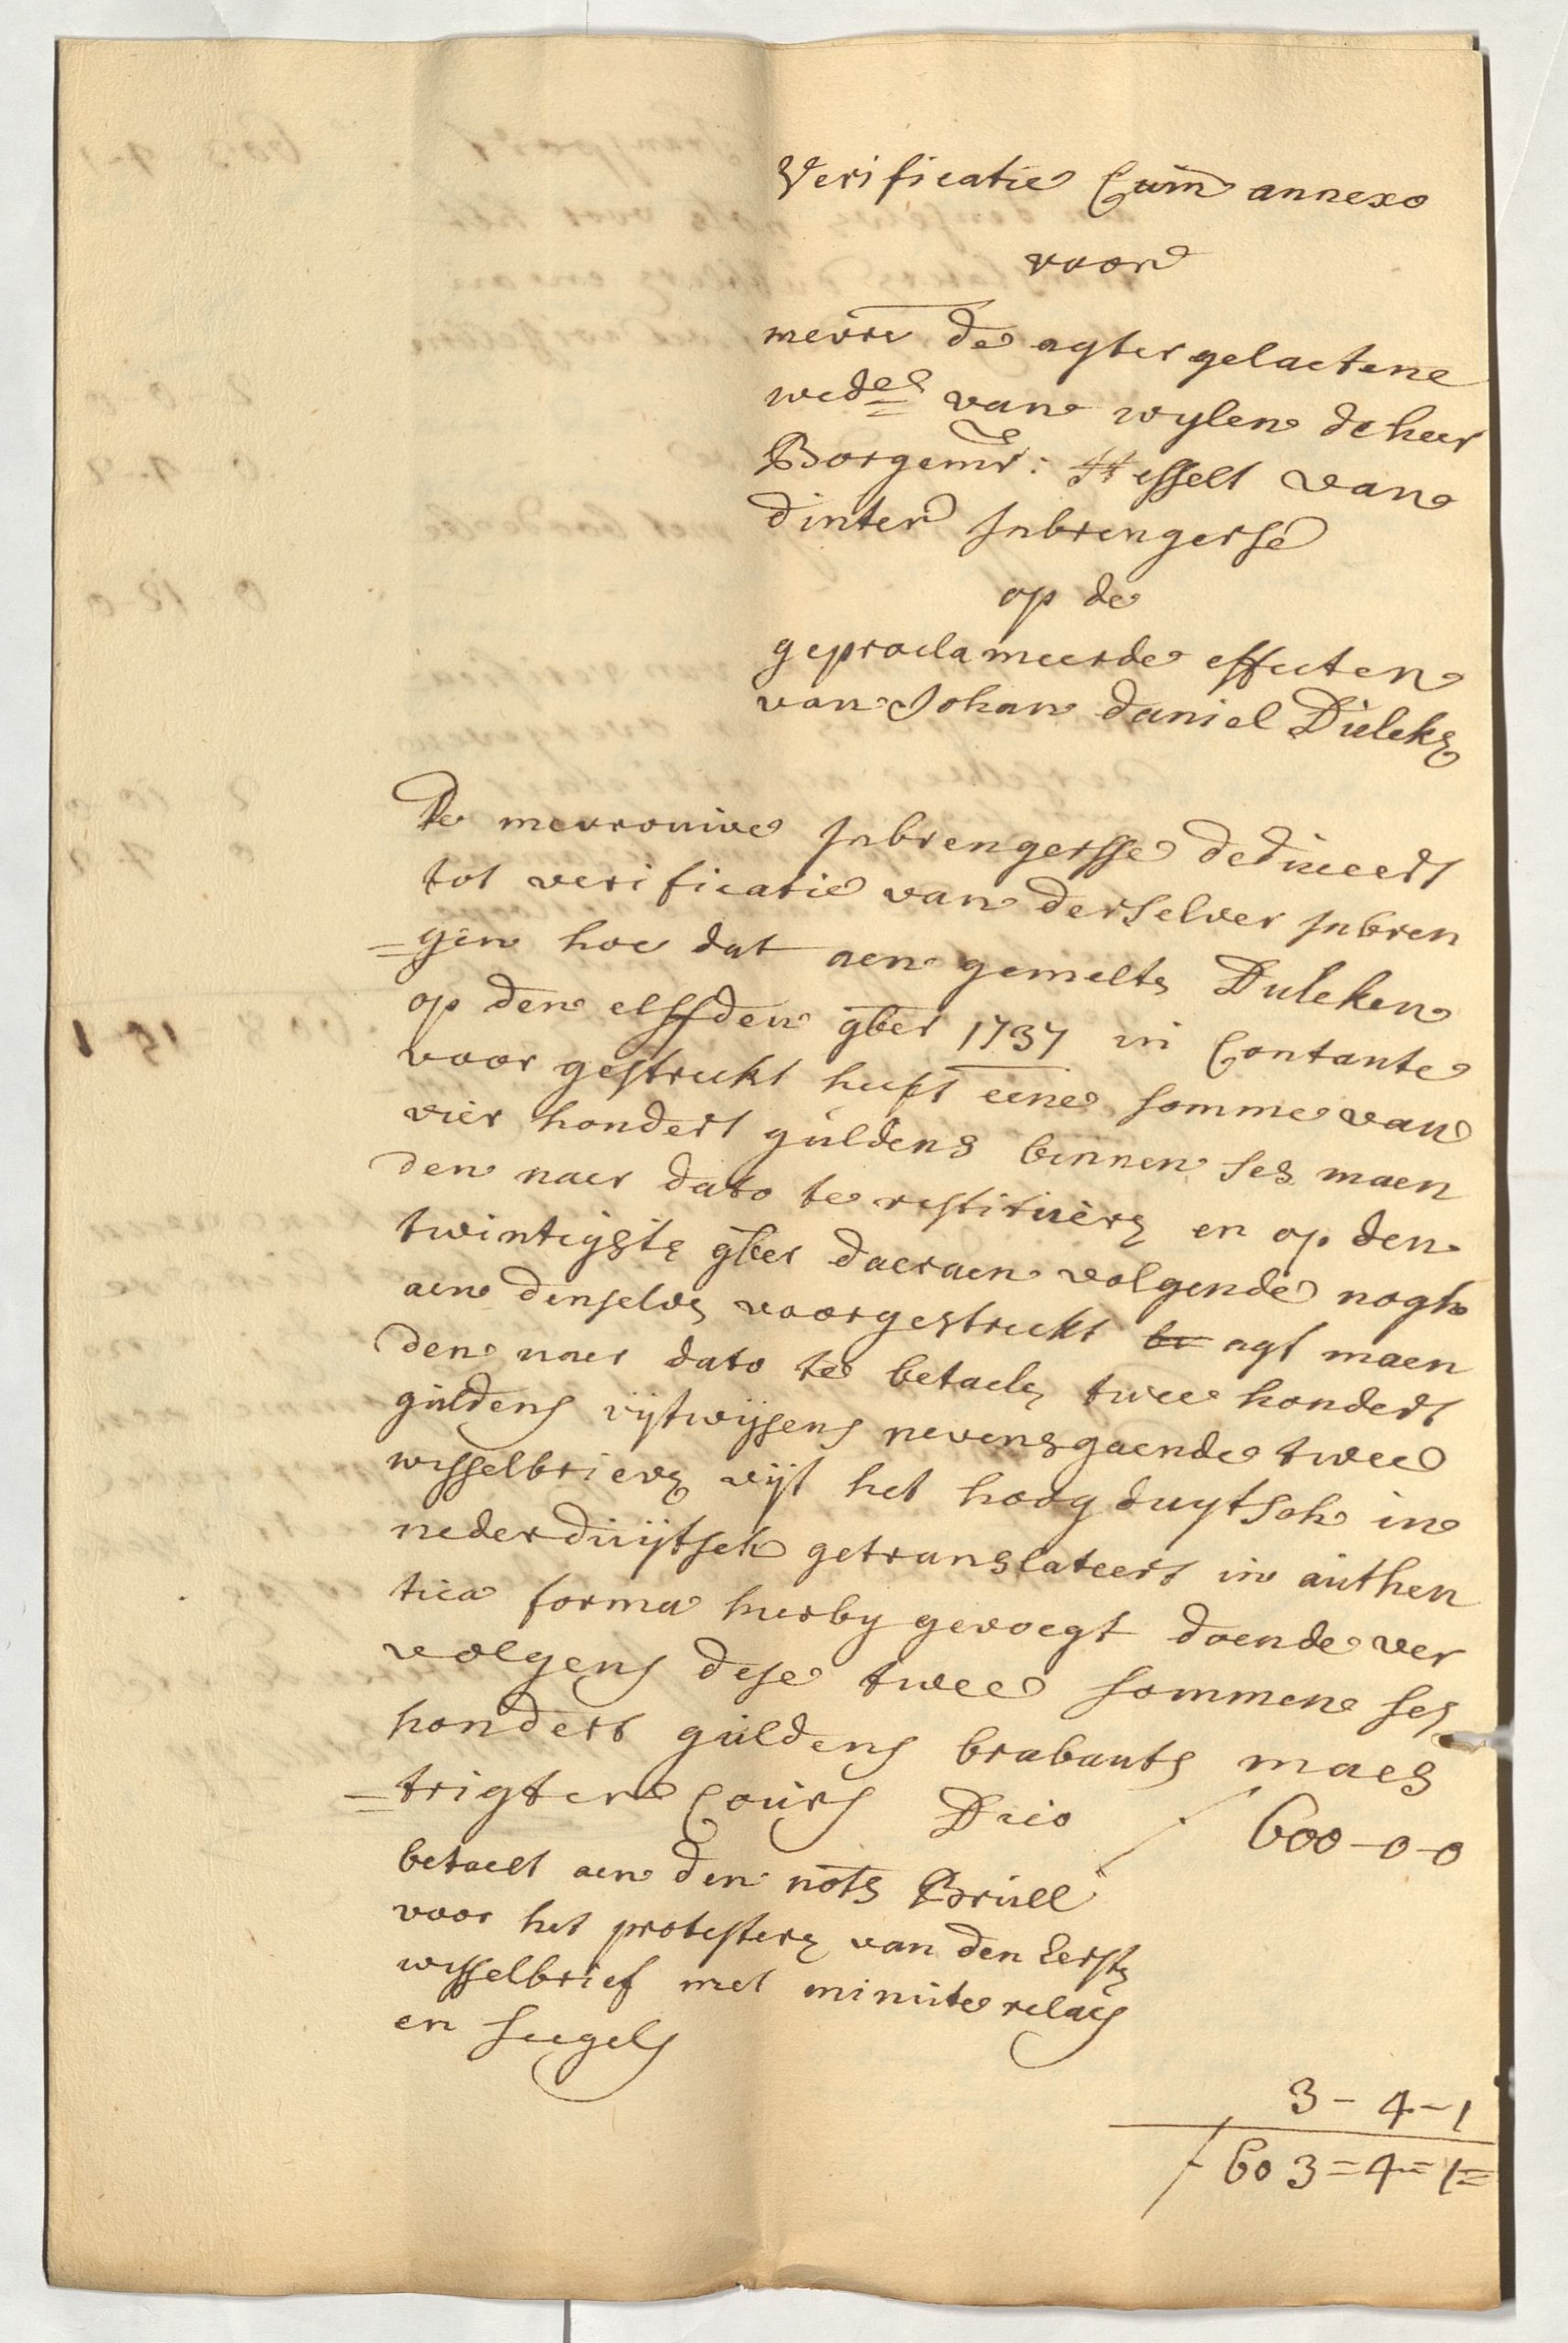 Verificatie Cum annexo
voor
mevre de agtergelaetene
wede van wylen de heer
Borgemr: Hesselt van
dinter Inbrengersse
op de
geproclameerde effecten
van Johan Daniel Dulcken
De mevrouwe Inbrengersse deduceert
tot verificatie van derselver Inbren
=gen hoe dat aen gemelte Dulcken
op den elffden 9ber 1737 in Contante
voor gestrekt heeft eene somme van
vier hondert guldens binnen ses maen
den naer dato te restitueren en op den
twintigste 9ber daeraen volgende nogh
aen denselve voorgestrekt agt maen
den naer dato te betaelen twee hondert
guldens uijtwijsens nevensgaende twee
wisselbrieven uijt het hoog duytsch in
nederduijtsch getranslateert in authen
tica forma hierby gevoegt doende ver
volgens dese twee sommen ses
hondert guldens brabants maes
=trigter Cours Dico f 600-0-0
betaelt aen den nots Brull
voor het protesteren van den Eersten
wisselbrief met minute relaes
en seegels
3-4-1
f 603=4=1=